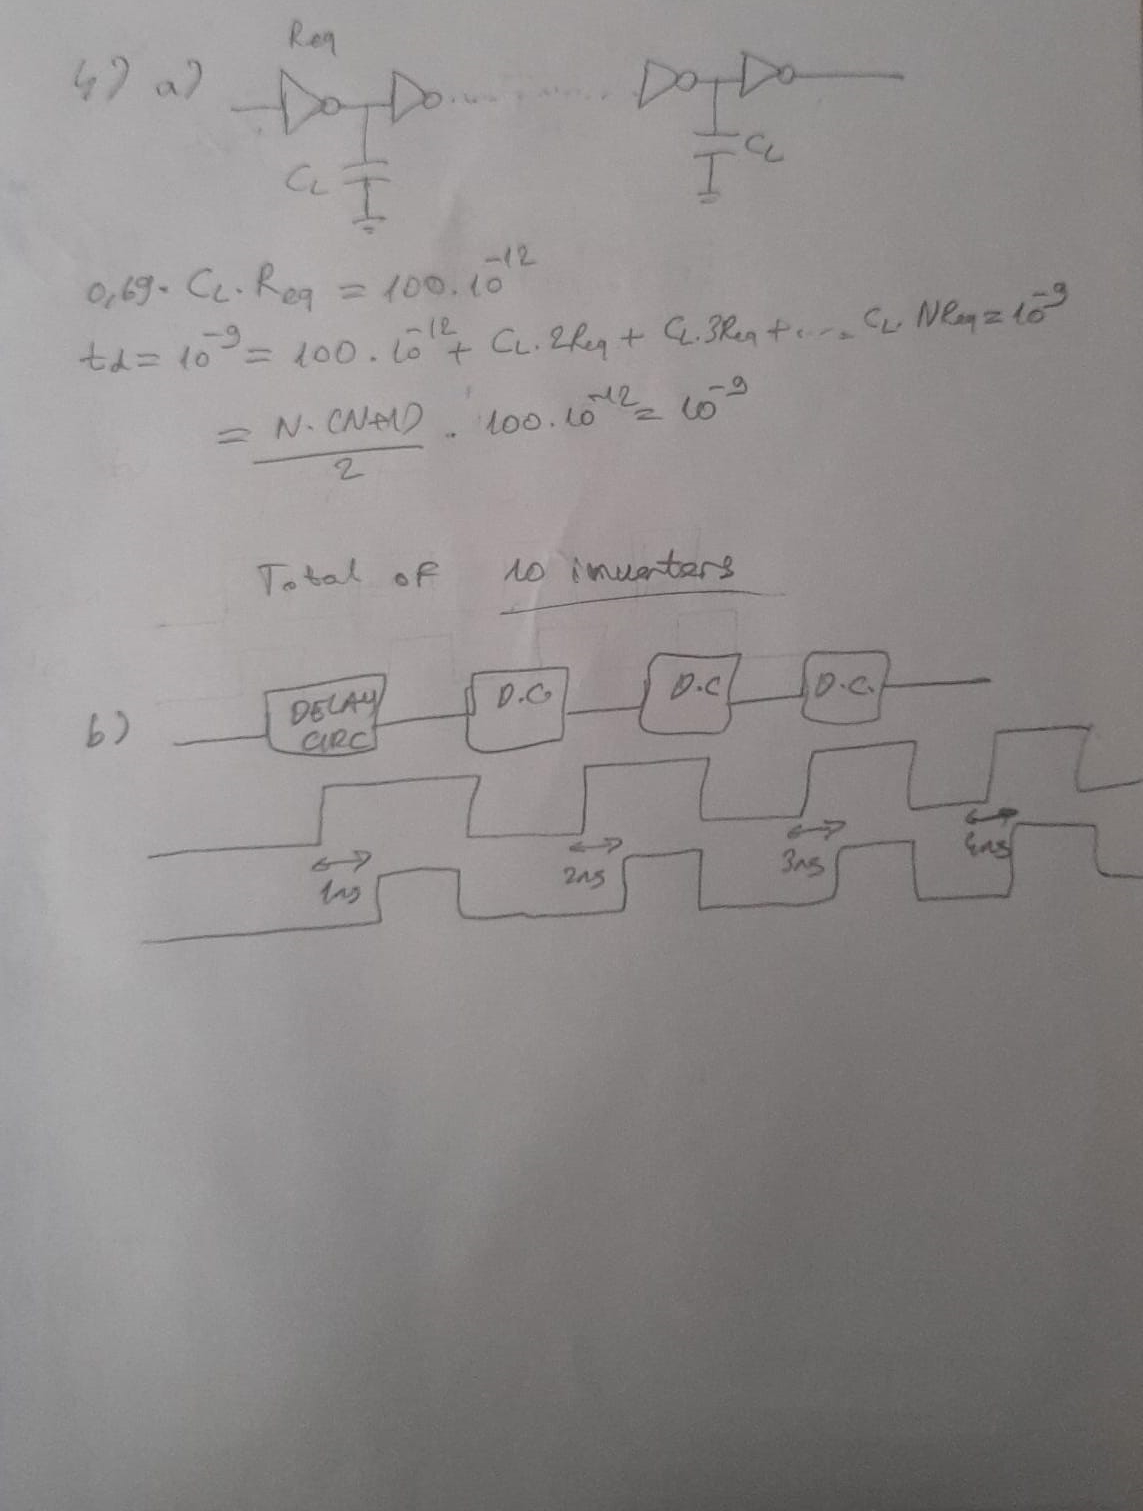 Req
4) a)
CL
CL
0,69. CL. Req = 100.10^-12
td = 10^-9 = 100.10^-12 + CL.2Req + CL.3Req + .... CL. NReq = 10^-9
= N.(N+1)/2 . 100.10^-12 = 10^-9
Total of 10 inverters
b) DELAY CIRC D.C. D.C D.C.
1ns 2ns 3ns 4ns